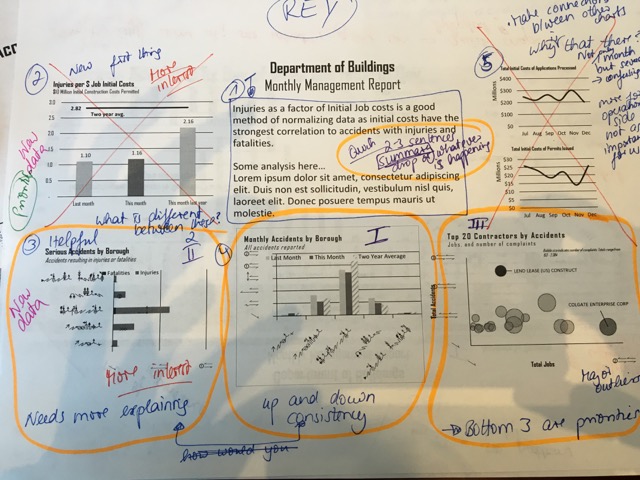 KEY
ACC
② New first thing
More interest
Injuries per $ Job Initial Costs
$10 Million Initial Construction Costs Permitted
3.0
2.5
2.0
1.5
1.0
0.5
0.0
2.82
Two year avg.
1.10
1.16
2.16
Last month
This month
This month last year
New data
Priority
what is different
between these?
① I
Department of Buildings
Monthly Management Report
Injuries as a factor of Initial Job costs is a good
method of normalizing data as initial costs have the
strongest correlation to accidents with injuries and
fatalities.
Some analysis here...
Lorem ipsum dolor sit amet, consectetur adipiscing
elit. Duis non est sollicitudin, vestibulum nisl quis,
laoreet elit. Donec posuere tempus mauris ut
molestie.
2-3 sentences
Summary
drop of whatever
is happening
Make connections
b/ween other
charts
why is that there?
Not only
month
but
confusing
more for
side
not
important
for us
5
Total Initial Costs of Applications Processed
Millions
$400
$300
$200
$100
$0
Jul Aug Sep Oct Nov Dec
Total Initial Costs of Permits Issued
Millions
$30
$25
$20
$15
$10
$5
$0
Jul Aug Sep Oct Nov Dec
③ Helpful
2
II
Serious Accidents by Borough
Accidents resulting in injuries or fatalities
Fatalities
Injuries
New data
More interest
Needs more explaining
4
I
Monthly Accidents by Borough
All accidents reported
Last Month
This Month
Two Year Average
up and down
consistency
how would you
III
Top 20 Contractors by Accidents
Jobs, and number of complaints
LEND LEASE (US) CONSTRUCT
COLGATE ENTERPRISE CORP
Total Accidents
Total Jobs
Major
outliers
→ Bottom 3 are priorities